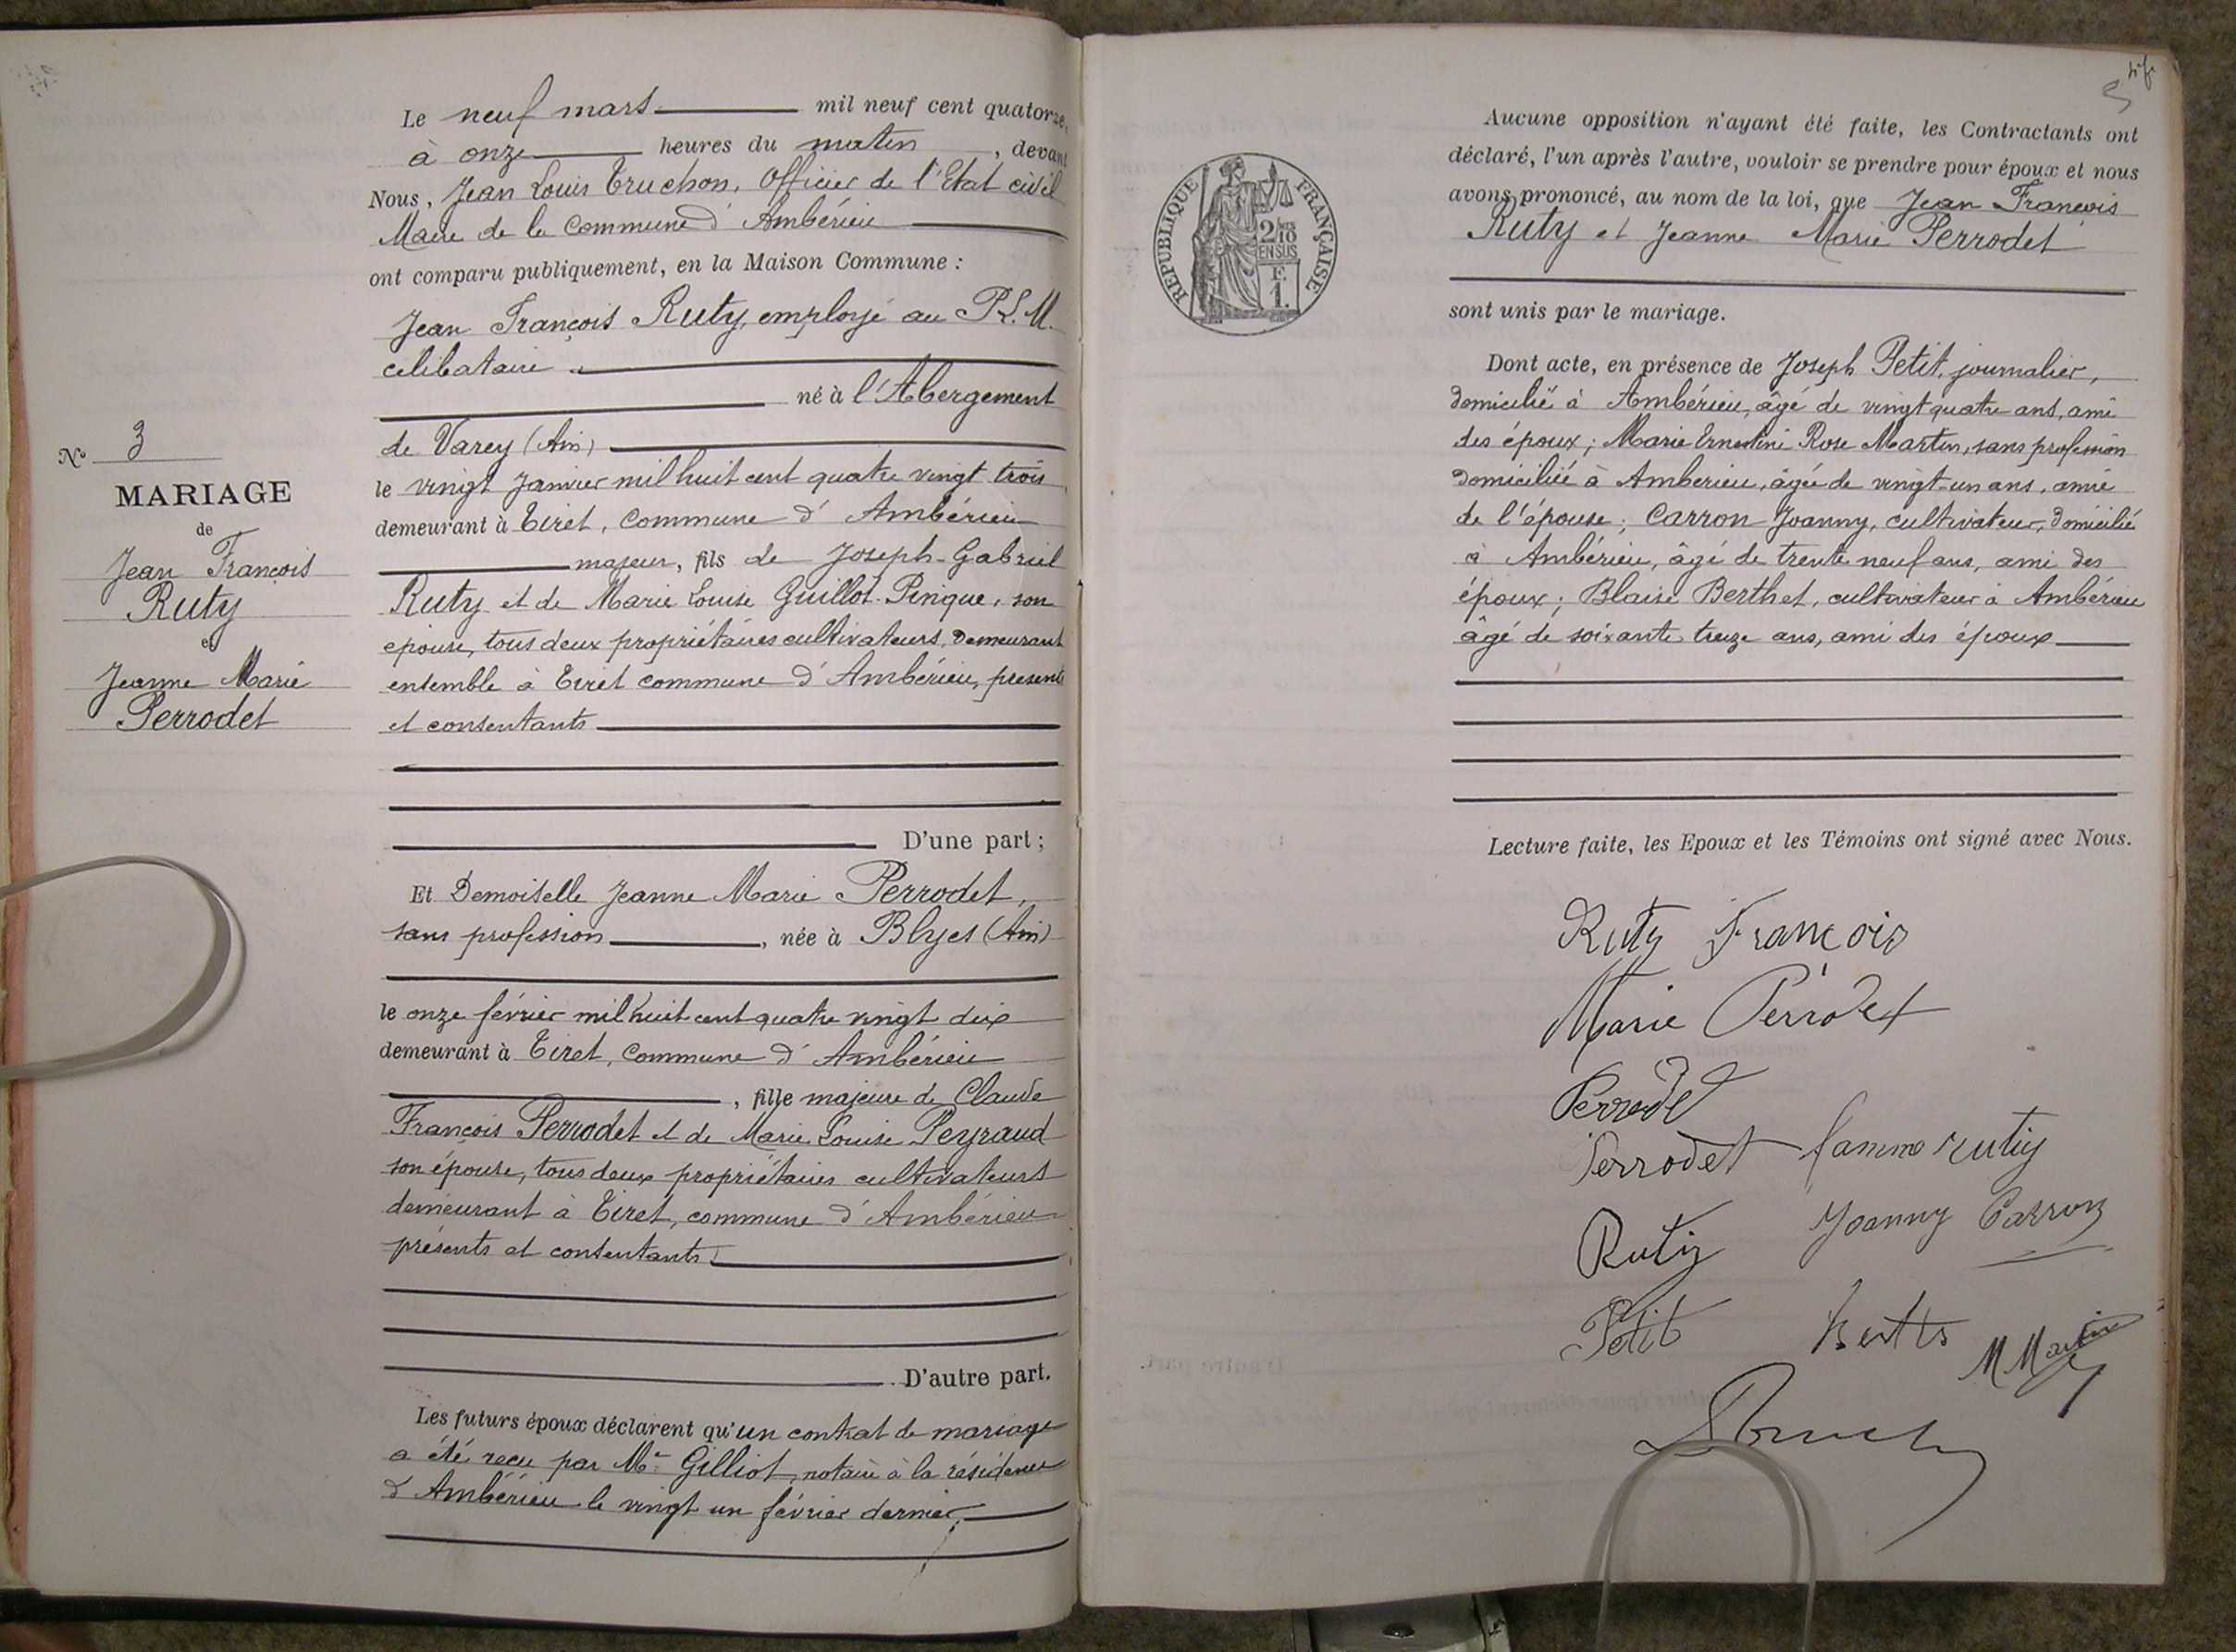 Le neuf mars mil neuf cent quatorze,
à onze heures du matin, devant
Nous, Jean Louis Truchon, Officier de l'Etat civil
Maire de la Commune d'Ambérieu
ont comparu publiquement, en la Maison Commune :
Jean François Ruty, employé au P.L.M.
célibataire
né à l'Abergement
de Varey (Ain)
le vingt Janvier mil huit cent quatre vingt trois
demeurant à Tiret, commune d'Ambérieu
majeur, fils de Joseph-Gabriel
Ruty et de Marie Louise Guillot-Pingue, son
épouse, tous deux propriétaires cultivateurs, demeurant
ensemble à Tiret commune d'Ambérieu, présents
et consentants
D'une part ;
N° 3
MARIAGE
de
Jean François
Ruty
et
Jeanne Marie
Perrodet
Et Demoiselle Jeanne Marie Perrodet,
sans profession, née à Blyes (Ain)
le onze février mil huit cent quatre vingt dix
demeurant à Tiret, commune d'Ambérieu
, fille majeure de Claude
François Perrodet et de Marie Louise Peyraud
son épouse, tous deux propriétaires cultivateurs
demeurant à Tiret, commune d'Ambérieu
présents et consentants
D'autre part.
Les futurs époux déclarent qu'un contrat de mariage
a été reçu par Me Gilliot, notaire à la résidence
d'Ambérieu le vingt un février dernier.
RÉPUBLIQUE FRANÇAISE
2/10
EN SUS
F.
1.
Aucune opposition n'ayant été faite, les Contractants ont
déclaré, l'un après l'autre, vouloir se prendre pour époux et nous
avons prononcé, au nom de la loi, que Jean François
Ruty et Jeanne Marie Perrodet
sont unis par le mariage.
Dont acte, en présence de Joseph Petit, journalier,
domicilié à Ambérieu, âgé de vingt quatre ans, ami
des époux ; Marie Ernestine Rose Martin, sans profession
domiciliée à Ambérieu, âgée de vingt-un ans, amie
de l'épouse ; Carron Joanny, cultivateur, domicilié
à Ambérieu, âgé de trente neuf ans, ami des
époux ; Blaise Berthet, cultivateur à Ambérieu
âgé de soixante treize ans, ami des époux
Lecture faite, les Epoux et les Témoins ont signé avec Nous.
Ruty François
Marie Perrodet
Perrodet
Perrodet famme rutiy
Rutiy Joanny Carron
Petit M Martin